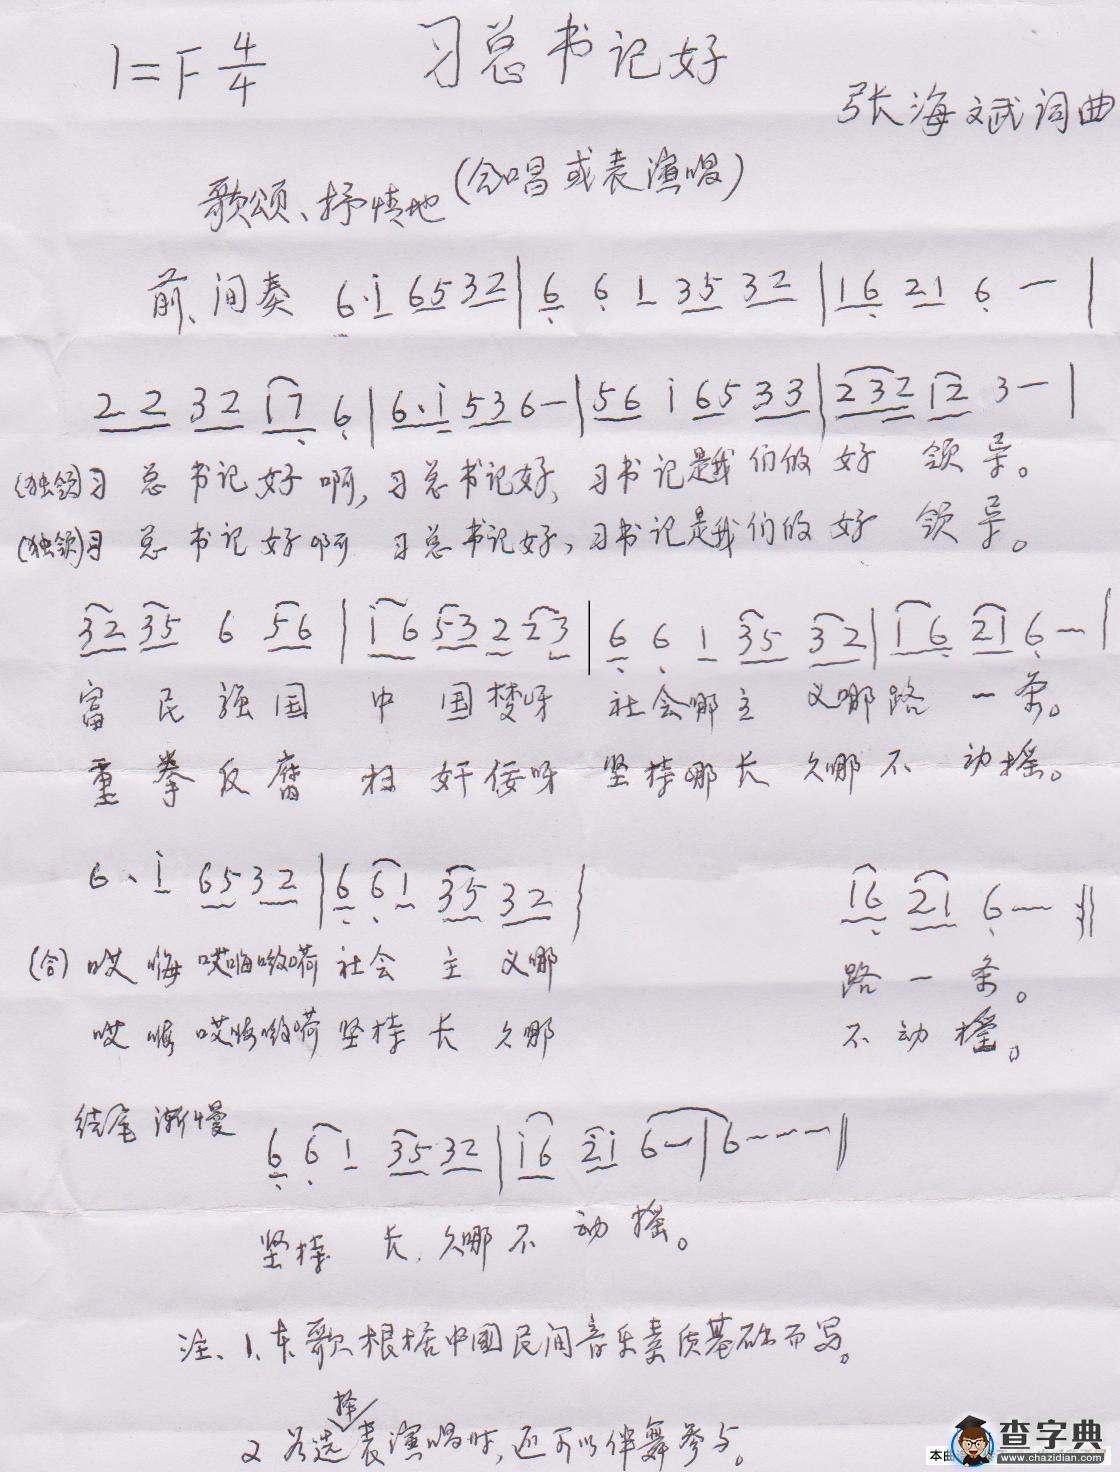 习总书记好
1=F 4/4
张海斌词曲
歌颂、抒情地(合唱或表演唱)
前、间奏 6·i 65 32 | 6 6 1 35 32 | 16 21 6 — |
22 32 17 6 | 6·i 53 6 — | 56 i 65 33 | 232 12 3 — |
(独领)习总书记好啊,习总书记好,习书记是我们的好领导。
(独领)习总书记好啊 习总书记好,习书记是我们的好领导。
32 35 6 56 | i6 53 2 23 | 6 6 1 35 32 | 16 21 6 — |
富民强国中国梦呀 社会哪主义哪路一条。
重拳反腐 奸佞呀 坚持哪长久哪不动摇。
6·i 65 32 | 6 61 35 32 | 16 21 6 — ‖
(合)哎嗨哎嗨哟嗬社会主义哪 路一条。
哎嗨哎嗨哟嗬坚持长久哪 不动摇。
结尾渐慢 6 61 35 32 | i6 2i 6 — | 6 — — — ‖
坚持长久哪不动摇。
注、1、本歌根据中國民间音乐素质基础而写。
2 若选择表演唱时,还可以伴舞参与。
查字典
www.chazidian.com
本曲